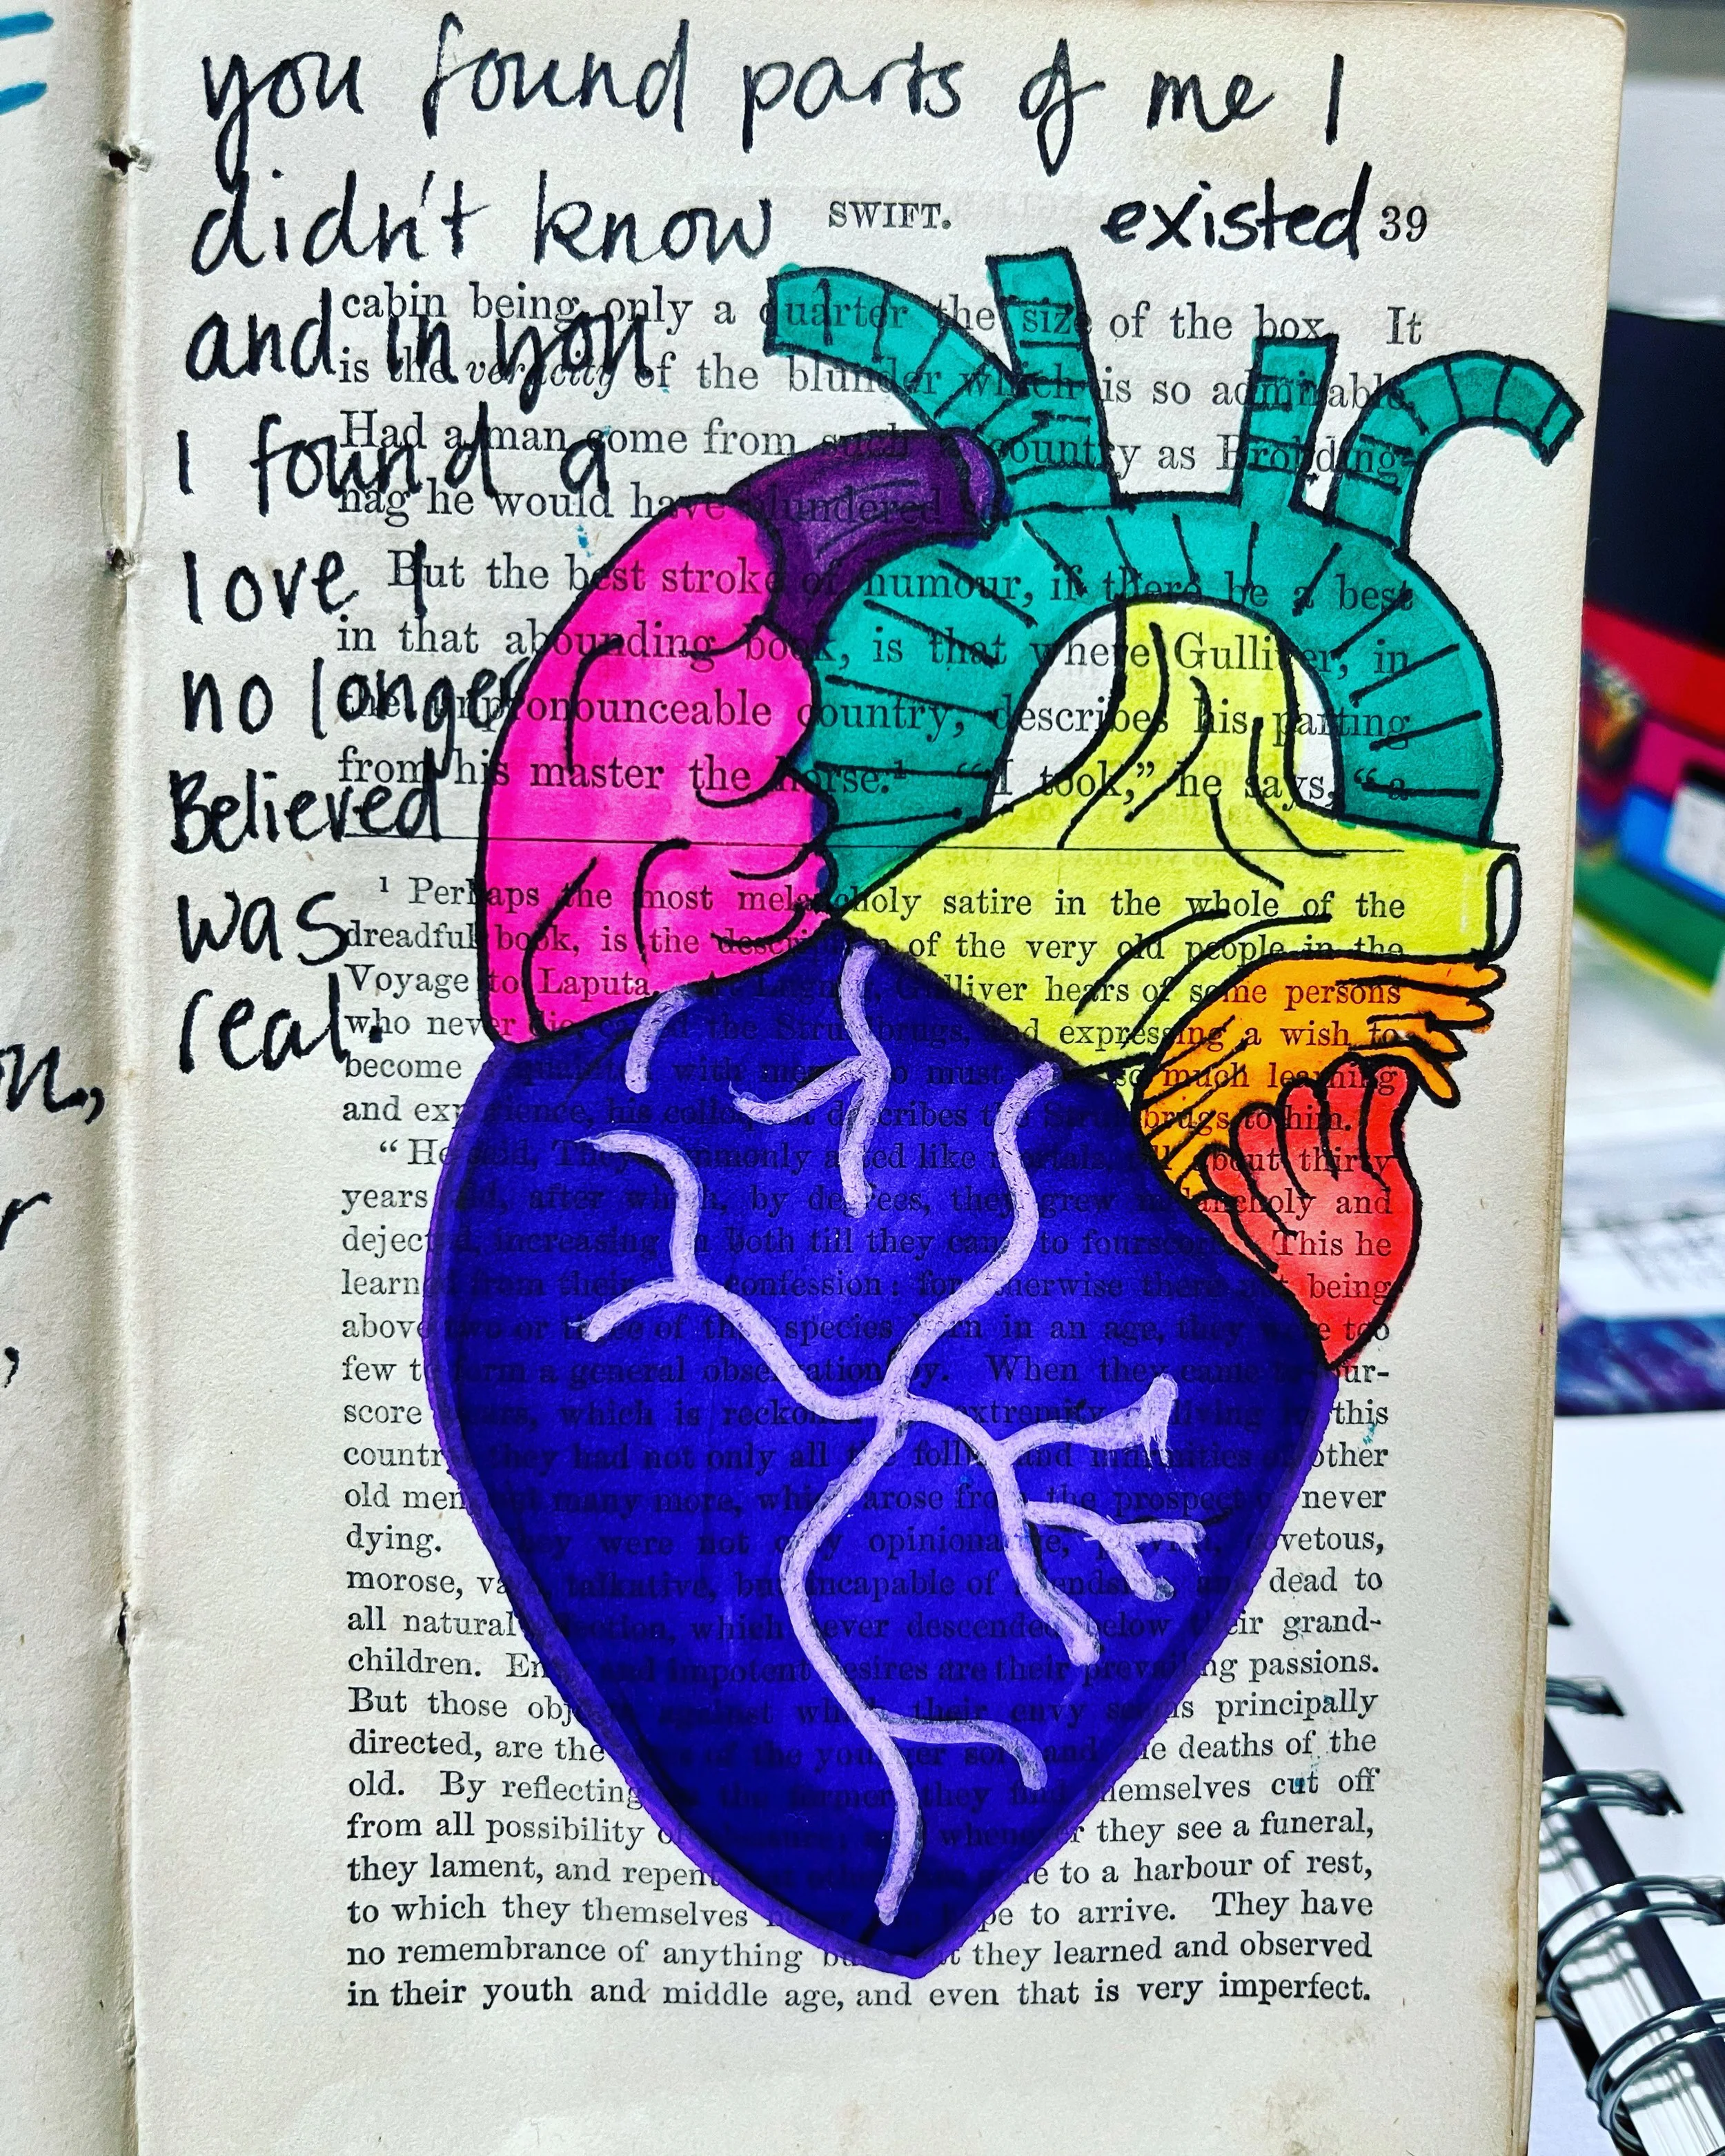 you found parts of me I
didn't know existed
and in you
I found a
love I
no longer
Believed
was
real.
SWIFT. 39
cabin being only a quarter the size of the box. It
is the veracity of the blunder which is so admirable.
Had a man come from such a country as Brobding-
nag he would have blundered so.
But the best stroke of humour, if there be a best
in that abounding book, is that where Gulliver, in
the unpronounceable country, describes his parting
from his master the horse.¹ "I took," he says, "a
¹ Perhaps the most melancholy satire in the whole of the
dreadful book, is the description of the very old people in the
Voyage to Laputa. At Gulliver hears of some persons
who never die, called the Struldbrugs, and expressing a wish to
become with men who must have so much learning
and experience, his colloquist describes the Struldbrugs to him.
"He said, They commonly acted like mortals, till about thirty
years old, after which, by degrees, they grew melancholy and
dejected, increasing in both till they came to fourscore. This he
learned from their own confession: for otherwise there not being
above two or three of that species born in an age, they were too
few to form a general observation by. When they came to four-
score years, which is reckoned the extremity of living in this
country, they had not only all the follies and infirmities of other
old men, but many more, which arose from the prospect of never
dying. They were not only opinionative, peevish, covetous,
morose, vain, talkative, but incapable of friendship, and dead to
all natural affection, which never descended below their grand-
children. Envy and impotent desires are their prevailing passions.
But those objects against which their envy seems principally
directed, are the vices of the younger sort and the deaths of the
old. By reflecting on the former they find themselves cut off
from all possibility of pleasure; and whenever they see a funeral,
they lament, and repent that others are gone to a harbour of rest,
to which they themselves never can hope to arrive. They have
no remembrance of anything but what they learned and observed
in their youth and middle age, and even that is very imperfect.